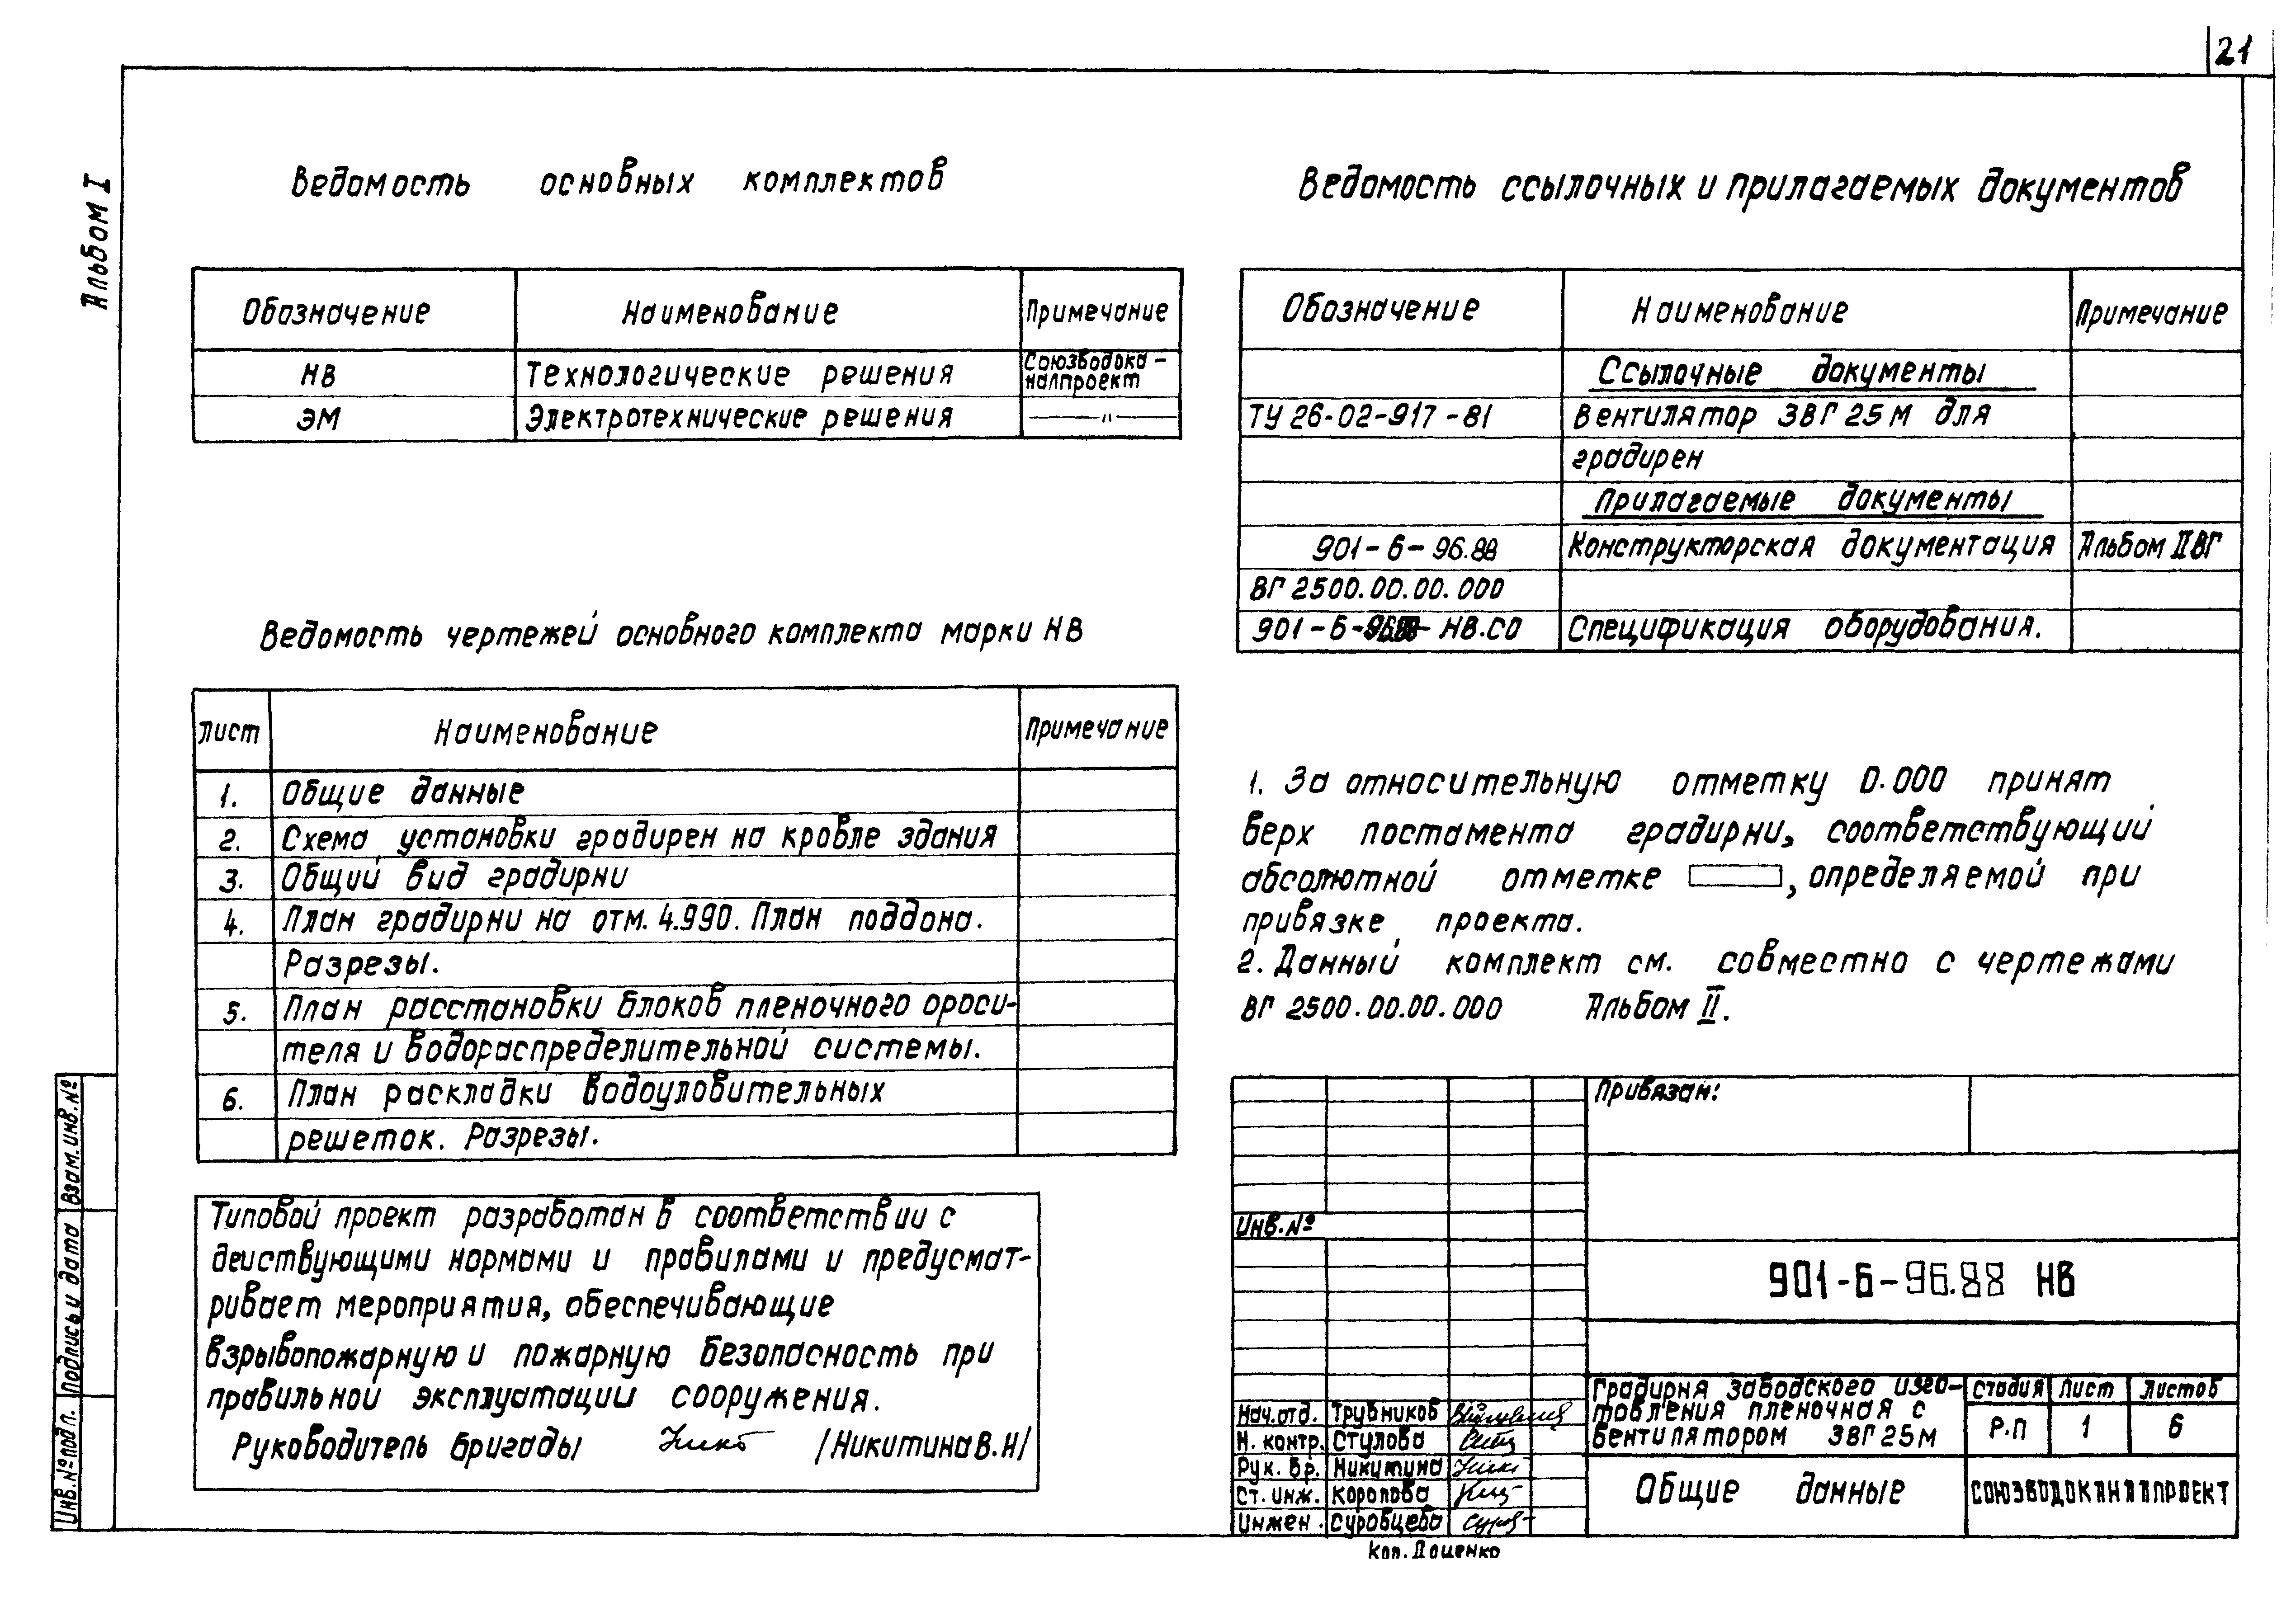 21
Альбом I
Ведомость основных комплектов
Обозначение Наименование Примечание
НВ Технологические решения Союзводока-
налпроект
ЭМ Электротехнические решения —"—
Ведомость чертежей основного комплекта марки НВ
Лист Наименование Примечание
1. Общие данные
2. Схема установки градирен на кровле здания
3. Общий вид градирни
4. План градирни на отм. 4.990. План поддона.
Разрезы.
5. План расстановки блоков пленочного ороси-
теля и водораспределительной системы.
6. План раскладки водоуловительных
решеток. Разрезы.
Типовой проект разработан в соответствии с
действующими нормами и правилами и предусмат-
ривает мероприятия, обеспечивающие
взрывопожарную и пожарную безопасность при
правильной эксплуатации сооружения.
Руководитель бригады /Никитина В.Н/
Ведомость ссылочных и прилагаемых документов
Обозначение Наименование Примечание
Ссылочные документы
ТУ 26-02-917-81 Вентилятор 3ВГ 25М для
градирен
Прилагаемые документы
901-6-96.88 Конструкторская документация Альбом II ВГ
ВГ 2500.00.00.000
901-6-96.88- НВ.СО Спецификация оборудования.
1. За относительную отметку 0.000 принят
верх постамента градирни, соответствующий
абсолютной отметке , определяемой при
привязке проекта.
2. Данный комплект см. совместно с чертежами
ВГ 2500.00.00.000 Альбом II.
Привязан:
Инв.№
901-6-96.88 НВ
Нач.отд. Трубников
Н. контр. Стулова
Рук. бр. Никитина
Ст. инж. Королова
Инжен. Суровцева
Градирня заводского изго-
товления пленочная с
вентилятором 3ВГ 25М
Стадия Лист Листов
Р.П 1 6
Общие данные
СОЮЗВОДОКАНАЛПРОЕКТ
Коп. Доценко
Инв.№ подл. Подпись и дата Взам.инв.№